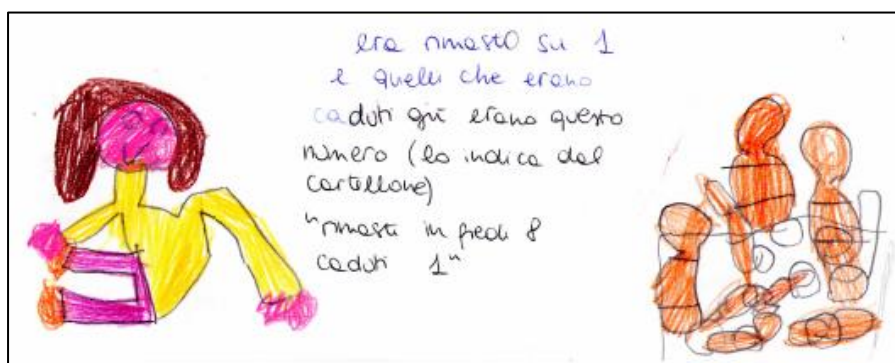 era rimasto su 1
e quelli che erano
caduti giù erano questo
numero (lo indica dal
cartellone)
"rimasti in piedi 8
caduti 1"